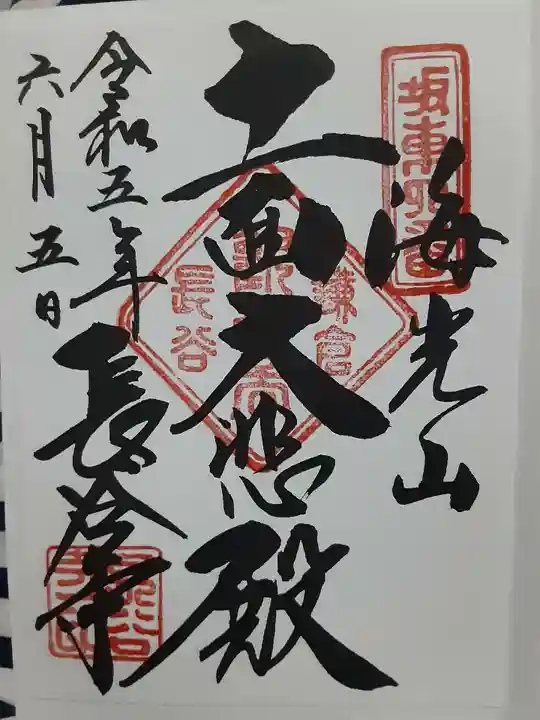 海光山
十一面大悲殿
令和五年
六月五日
長谷寺
坂東四番
鎌倉
長谷